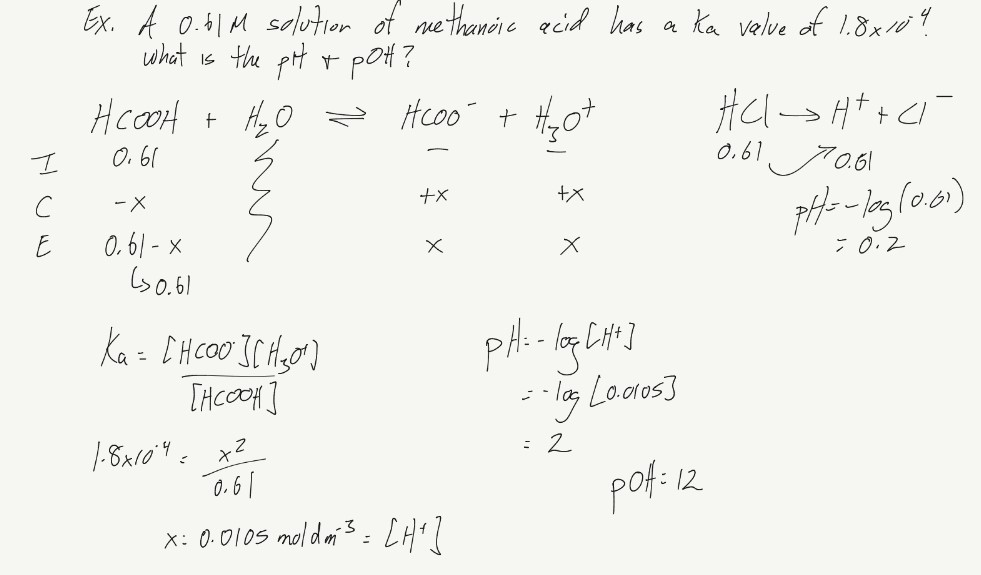 Ex. A 0.61M solution of methanoic acid has a Ka value of 1.8x10⁻⁴.
What is the pH + pOH?
HCOOH + H₂O ⇌ HCOO⁻ + H₃O⁺
I 0.61 – –
C -x +x +x
E 0.61-x x x
↳0.61
HCl → H⁺ + Cl⁻
0.61 0.61
pH = -log(0.61)
= 0.2
Ka = [HCOO⁻][H₃O⁺]
[HCOOH]
1.8x10⁻⁴ = x²
0.61
x = 0.0105 mol dm⁻³ = [H⁺]
pH = -log[H⁺]
= -log[0.0105]
= 2
pOH = 12